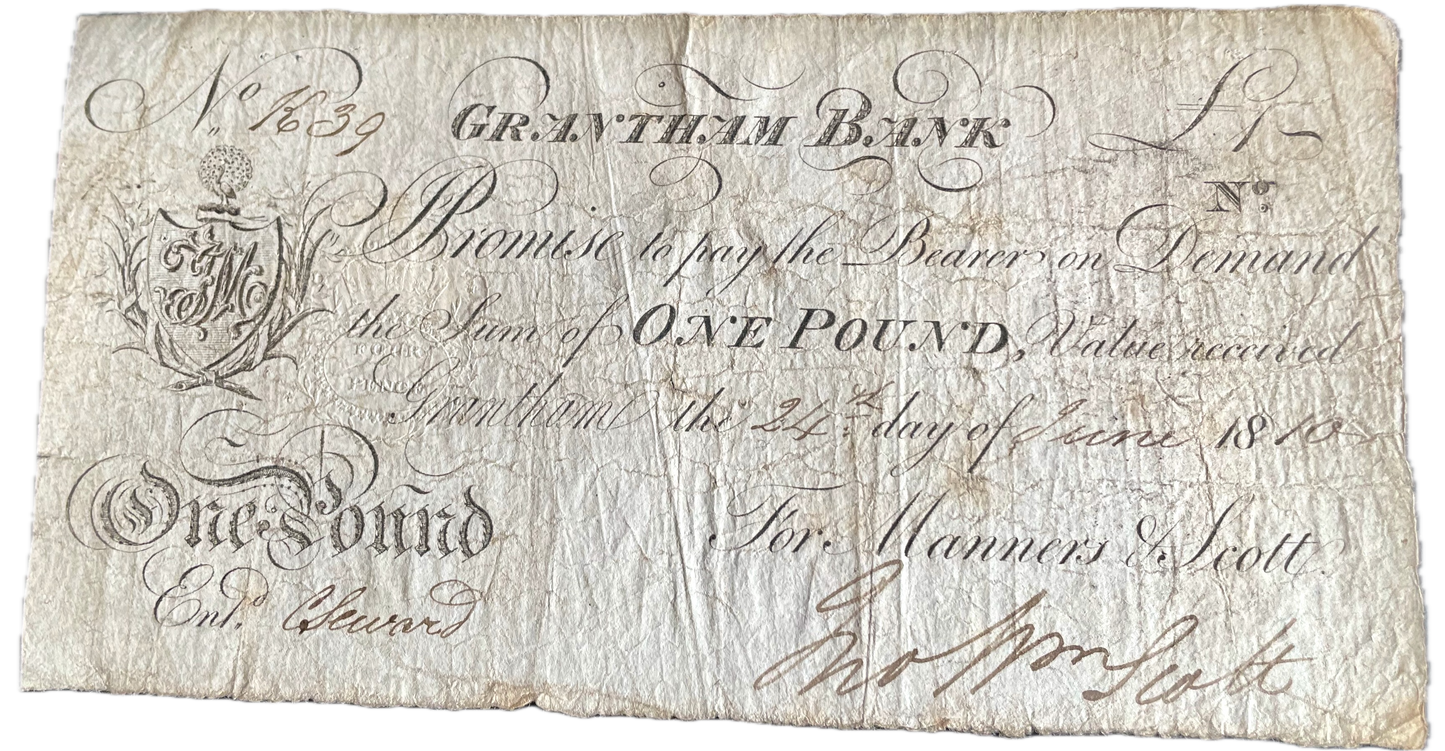 No. K639 GRANTHAM BANK £1-
No.
I Promise to pay the Bearer on Demand
the Sum of ONE POUND, Value received
FOUR
PENCE
Grantham the 24th. day of June 1810
One Pound For Manners & Scott
Entd. CSeward
Jno Wm Scott